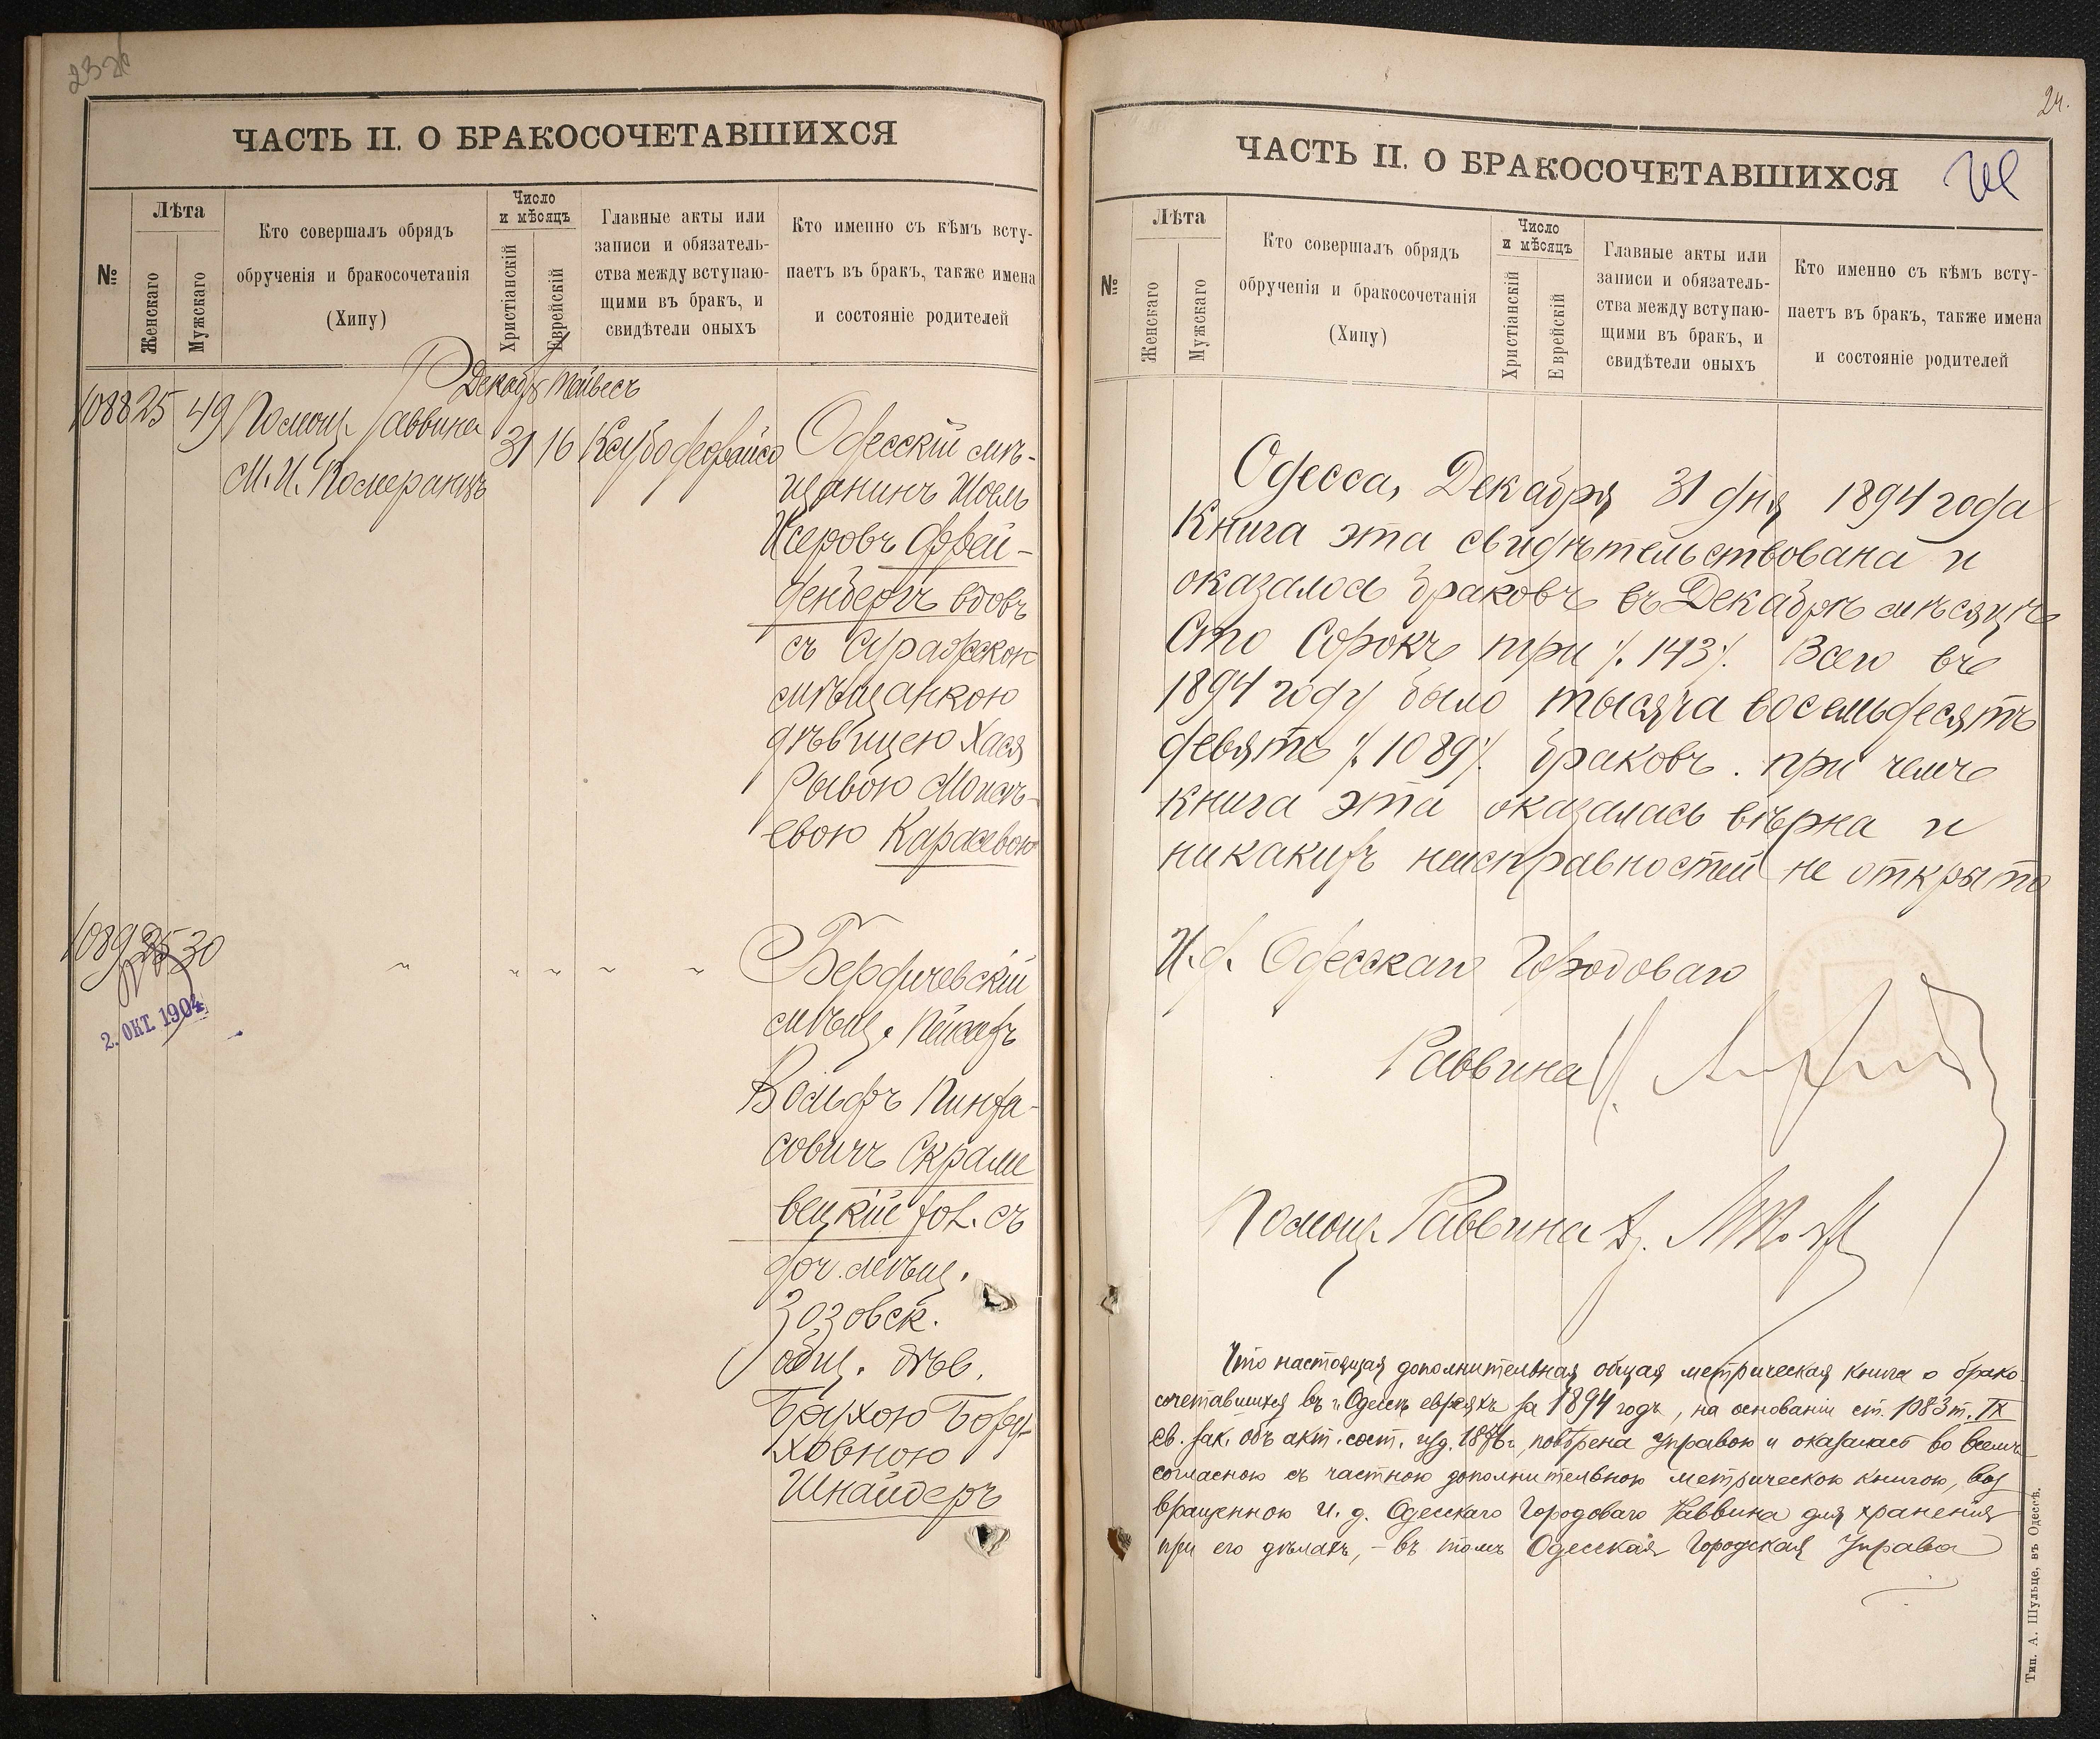 ЧАСТЬ II. О БРАКОСОЧЕТАВШИХСЯ
№
Лѣта
Женскаго
Мужскаго
Кто совершалъ обрядъ
обрученія и бракосочетанія
(Хипу)
Число
и мѣсяцъ
Христіанскій
Еврейскій
Главные акты или
записи и обязатель-
ства между вступаю-
щими въ бракъ, и
свидѣтели оныхъ
Кто именно съ кѣмъ всту-
паетъ въ бракъ, также имена
и состояніе родителей
Декабр Тейвесъ
1088 25 49 Помощ. Раввина 31 16
М. И. Померанцъ
Одесскій мѣ-
щанинъ Шоель
Исеровъ Ффей-
фенберъ вдовъ
съ
мѣщанкою
дѣвицею Хася
Рывою Моисѣ-
евою Карасевою
1089 25 30
2. ОКТ. 1904
Бердичевскій
мѣщ. Пейсахъ
Вольфъ Пинха-
совичъ Скрали
вецкій хол. съ
доч. мѣщ.
Зозовск.
общ. дѣв.
Брухою Бору-
ховною
Шнайдеръ
24.
ЧАСТЬ II. О БРАКОСОЧЕТАВШИХСЯ
№
Лѣта
Женскаго
Мужскаго
Кто совершалъ обрядъ
обрученія и бракосочетанія
(Хипу)
Число
и мѣсяцъ
Христіанскій
Еврейскій
Главные акты или
записи и обязатель-
ства между вступаю-
щими въ бракъ, и
свидѣтели оныхъ
Кто именно съ кѣмъ всту-
паетъ въ бракъ, также имена
и состояніе родителей
Одесса, Декабря 31 дня 1894 года
Книга эта свидѣтельствована и
оказалось браковъ въ Декабрѣ мѣсяцѣ
Сто Сорокъ три ٪ 143 ٪. Всего въ
1894 году было тысяча восемьдесятъ
девять ٪ 1089 ٪. браковъ. при чемъ
книга эта оказалась вѣрна и
никакихъ неисправностей не открыто
И. д. Одесскаго Городоваго
Раввина
Помощ. Раввина
Что настоящая дополнительная общая метрическая книга о брако-
сочетавшихся въ г. Одессѣ евреяхъ за 1894 годъ, на основаніи ст. 1083 т. IX
св. зак. объ акт. сост. изд. 1876 г., повѣрена Управою и оказалась во всемъ
согласною съ частною дополнительною метрическою книгою, воз
вращенною и. д. Одесскаго Городоваго Раввина для храненія
при его дѣлахъ, – въ томъ Одесская Городская Управа
Тип. А. Шульце, въ Одессѣ.